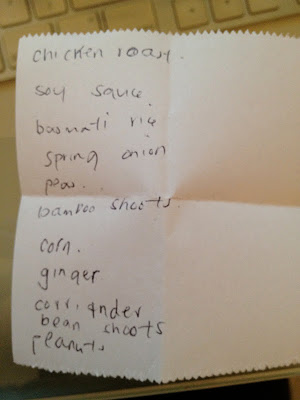 chicken roast.
soy sauce.
basmati rice
spring onion
peas..
bamboo shoots.
corn.
ginger
corriander
bean shoots
peanuts